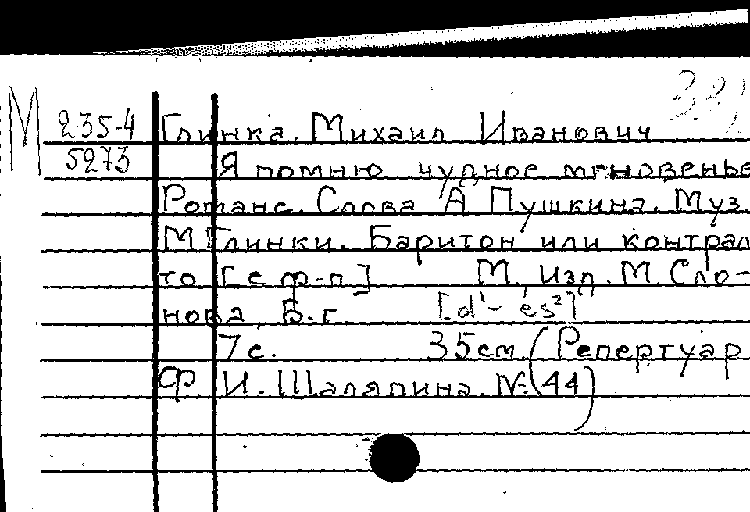 М 235-4 Глинка, Михаил Иванович
5273 Я помню чудное мгновенье
Романс. Слова А. Пушкина. Муз.
М. Глинки. Баритон или контраль
то [с ф-п.] М., изд. М. Сло-
нова, б. г. [d¹ - es²]
7 с. 35 см. (Репертуар
Ф. И. Шаляпина. № 44)